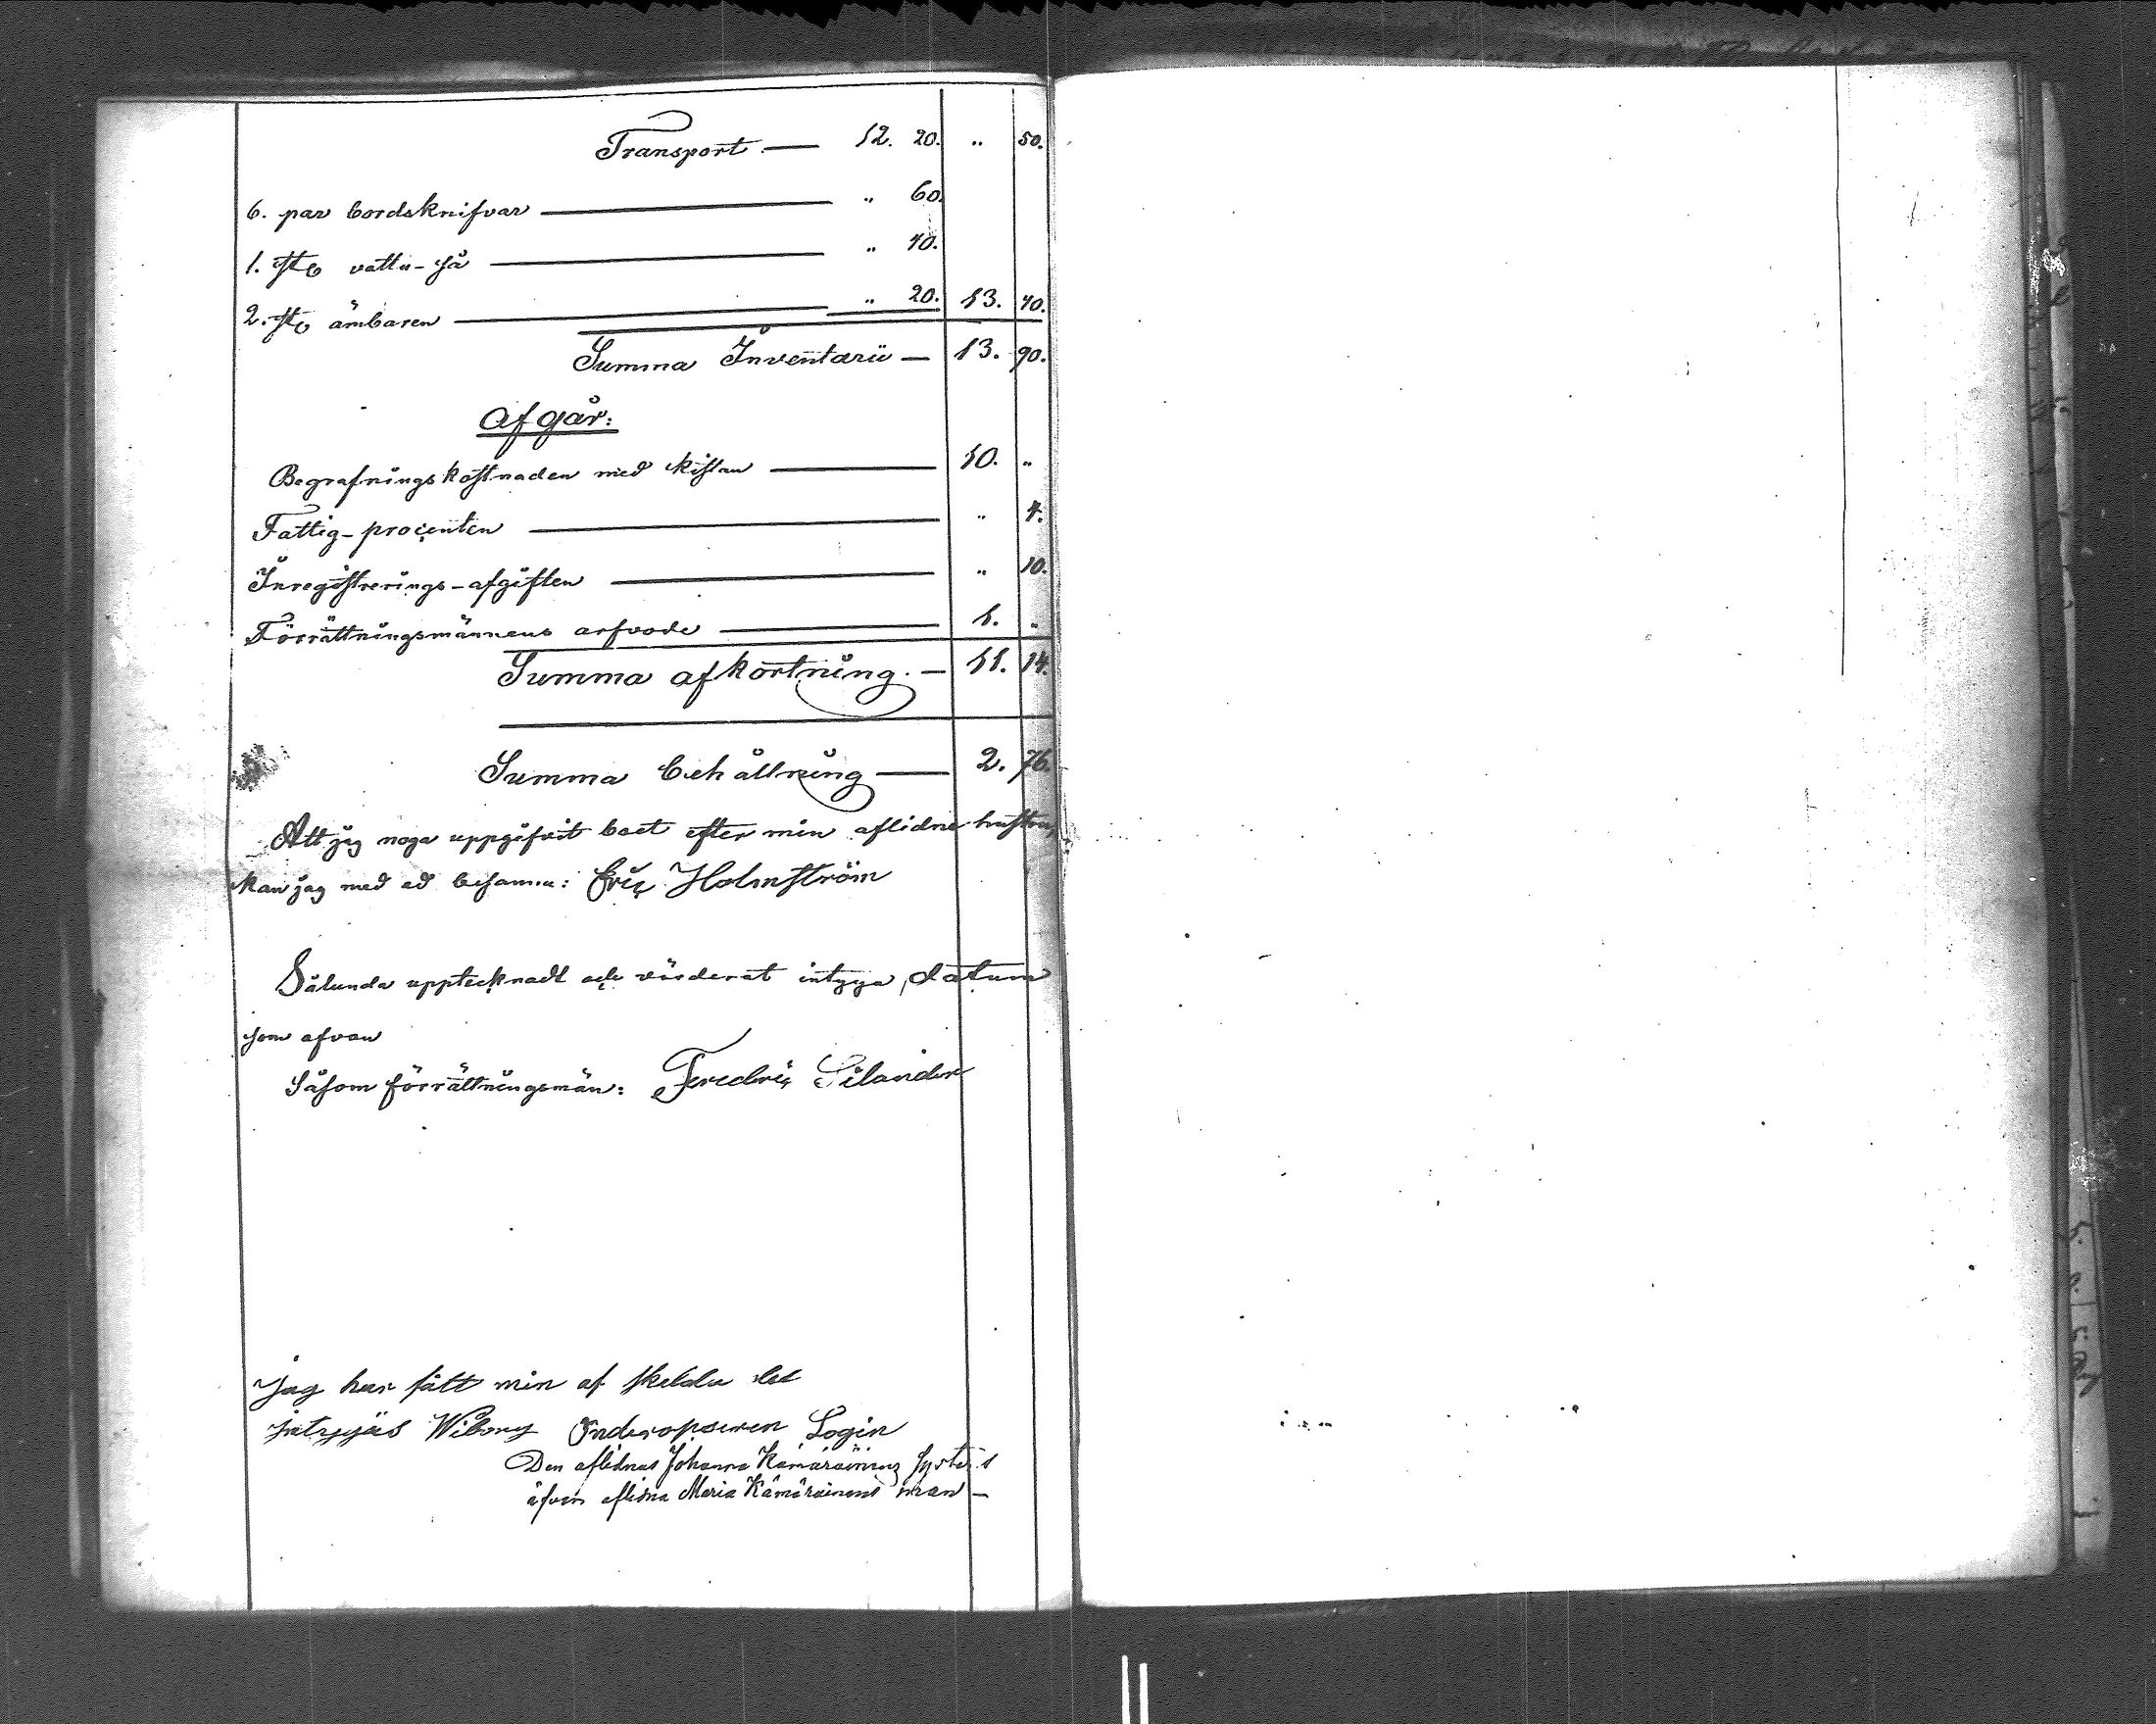 Transport — 12. 20. „ 50.
6. par bordsknifvar — „ 60.
1. st. vattu-så — „ 40.
2. st. ämbaren — „ 20. 13. 40.
Summa Inventarii — 13. 90.
Afgår:
Begrafningskostnaden med kistan — 10. „
Fattig-procenten — „ 4.
Inregistrerings-afgiften — „ 10.
Förrättningsmännens arfvode — 1. „
Summa afkortning. — 11. 14.
Summa behållning — 2. 76.
Att jag noga uppgifvit boet efter min aflidne hustru,
kan jag med ed besanna: Eric Holmström
Sålunda upptecknadt och värderat intyga, datum
som ofvan
Såsom förrättningsmän: Fredric Silander
Jag har fått min af skeldu del
intyjäs Wiborg Login
Den aflidnas Johanna Kämäräinens systers
äfven aflidna Maria Kämäräinens man —